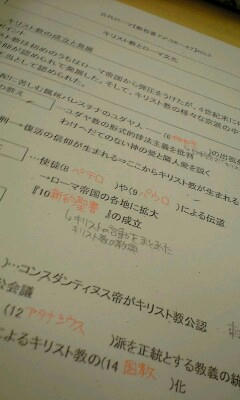 キリスト教の成立と発展
キリスト教とローマ文化
ト教は初めのうちはローマ帝国から弾圧をうけたが、4世紀末に
仰が認められて発展した。そして、キリスト教の様々な宗派の中
当として認められた。
に苦しむ属州パレスチナのユダヤ人
の教え
ユダヤ教の形式的律法主義を批判
わけへだてのない神の愛と隣人愛を説く
刑→復活の信仰が生まれる⇒ここからキリスト教が生まれる
…使徒(8 ペテロ )や(9 パウロ )による伝道
→ローマ帝国の各地に拡大
『10 新約聖書 』の成立
キリストの言動をまとめた
キリスト教の教典
)…コンスタンティヌス帝がキリスト教公認
公会議
(12 アタナシウス )派を正統とする教義の統
によるキリスト教の(14 国教 )化